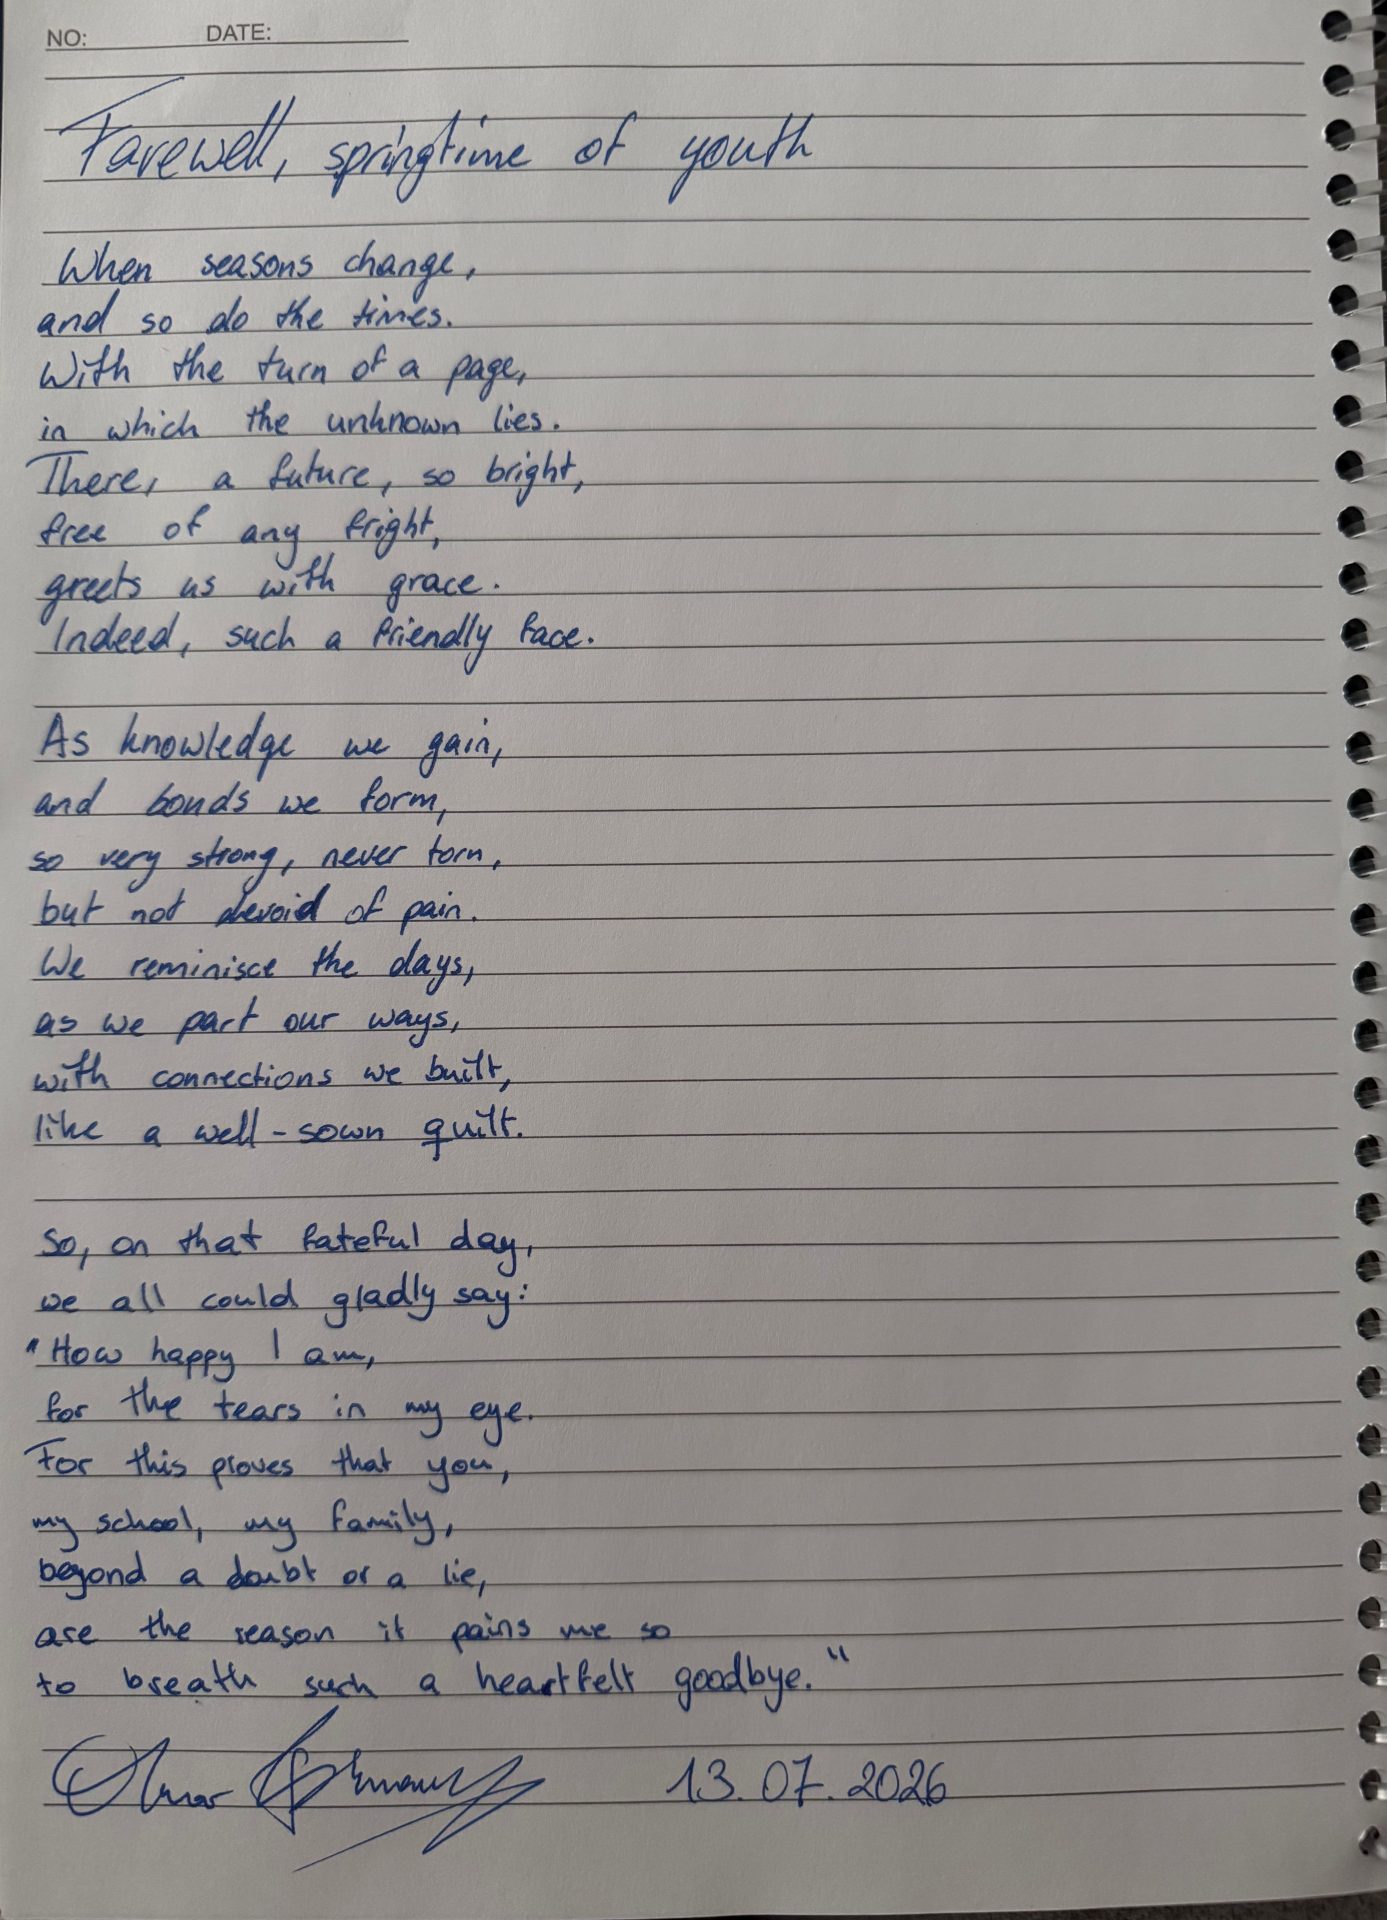 NO: DATE:
Farewell, springtime of youth
When seasons change,
and so do the times.
With the turn of a page,
in which the unknown lies.
There, a future, so bright,
free of any fright,
greets us with grace.
Indeed, such a friendly face.
As knowledge we gain,
and bonds we form,
so very strong, never torn,
but not devoid of pain.
We reminisce the days,
as we part our ways,
with connections we built,
like a well-sown quilt.
So, on that fateful day,
we all could gladly say:
"How happy I am,
for the tears in my eye.
For this proves that you,
my school, my family,
beyond a doubt or a lie,
are the reason it pains me so
to breath such a heartfelt goodbye."
13.07.2026